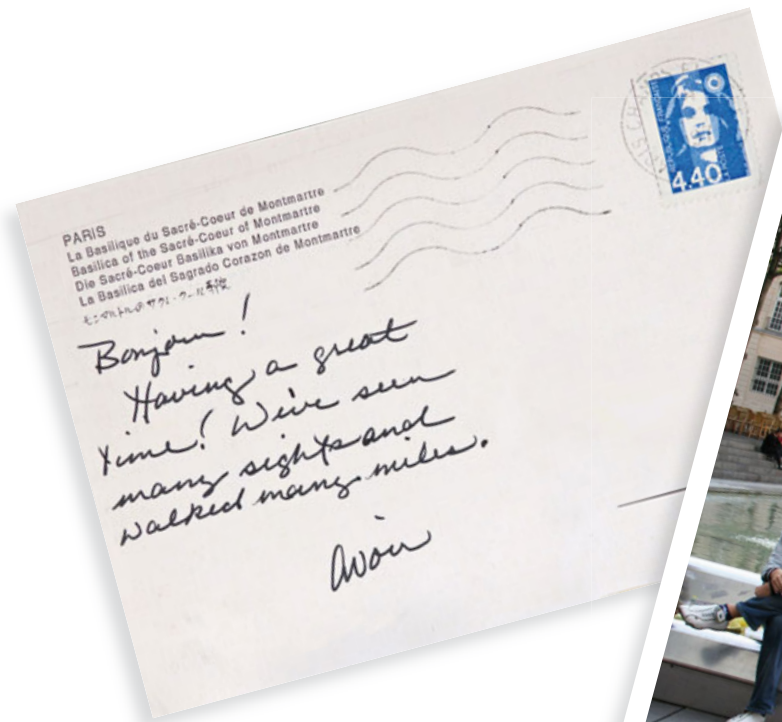 PARIS
La Basilique du Sacré-Coeur de Montmartre
Basilica of the Sacré-Coeur of Montmartre
Die Sacré-Coeur Basilika von Montmartre
La Basilica del Sagrado Corazon de Montmartre
モンマルトルのサクレ・クール寺院
Bonjour!
Having a great
time! We've seen
many sights and
walked many miles.
4.40